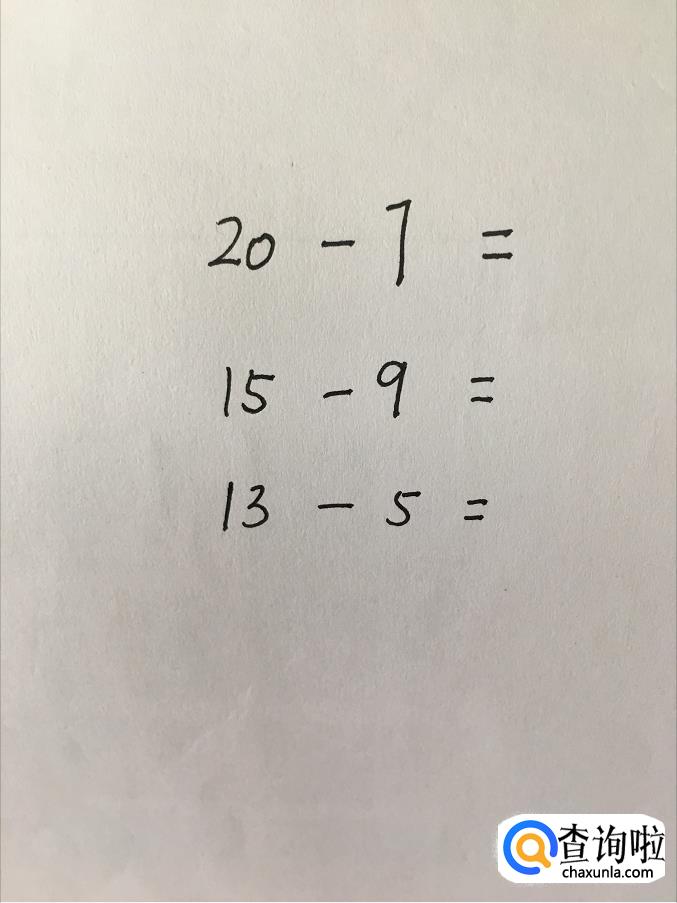 20 - 7 =
15 - 9 =
13 - 5 =
查询啦
chaxunla.com